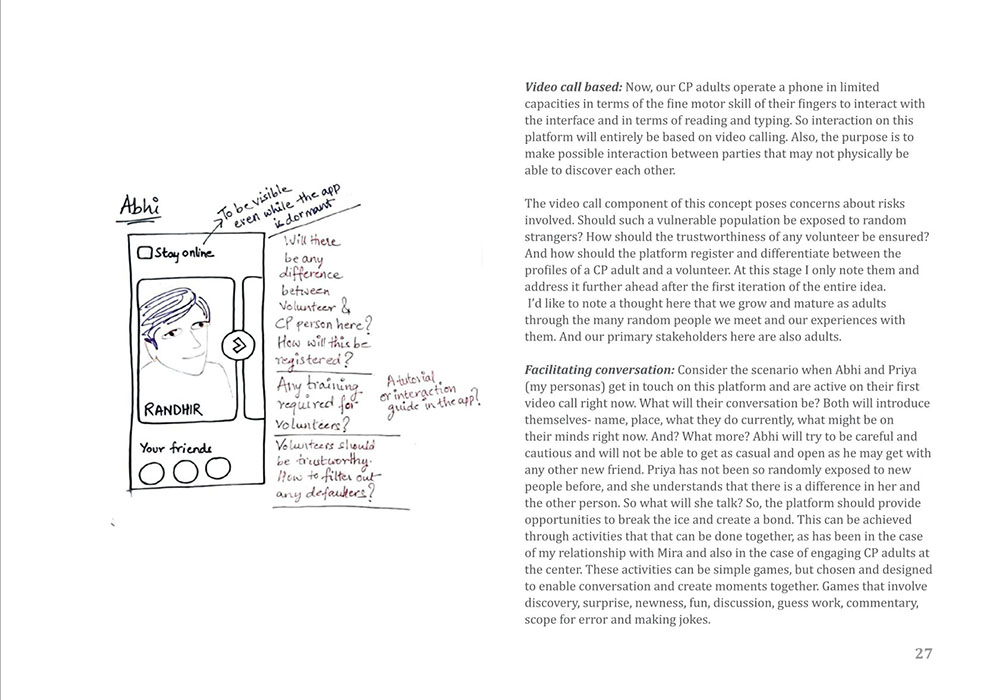 Abhi
To be visible
even while the app
is dormant
Stay online
RANDHIR
Your friends
Will there
be any
difference
between
Volunteer &
CP person here?
How will this be
registered?
Any training
required for
volunteers?
A tutorial
or interaction
guide in the app?
Volunteers should
be trustworthy.
How to filter out
any defaulters?
Video call based: Now, our CP adults operate a phone in limited
capacities in terms of the fine motor skill of their fingers to interact with
the interface and in terms of reading and typing. So interaction on this
platform will entirely be based on video calling. Also, the purpose is to
make possible interaction between parties that may not physically be
able to discover each other.
The video call component of this concept poses concerns about risks
involved. Should such a vulnerable population be exposed to random
strangers? How should the trustworthiness of any volunteer be ensured?
And how should the platform register and differentiate between the
profiles of a CP adult and a volunteer. At this stage I only note them and
address it further ahead after the first iteration of the entire idea.
I'd like to note a thought here that we grow and mature as adults
through the many random people we meet and our experiences with
them. And our primary stakeholders here are also adults.
Facilitating conversation: Consider the scenario when Abhi and Priya
(my personas) get in touch on this platform and are active on their first
video call right now. What will their conversation be? Both will introduce
themselves- name, place, what they do currently, what might be on
their minds right now. And? What more? Abhi will try to be careful and
cautious and will not be able to get as casual and open as he may get with
any other new friend. Priya has not been so randomly exposed to new
people before, and she understands that there is a difference in her and
the other person. So what will she talk? So, the platform should provide
opportunities to break the ice and create a bond. This can be achieved
through activities that that can be done together, as has been in the case
of my relationship with Mira and also in the case of engaging CP adults at
the center. These activities can be simple games, but chosen and designed
to enable conversation and create moments together. Games that involve
discovery, surprise, newness, fun, discussion, guess work, commentary,
scope for error and making jokes.
27